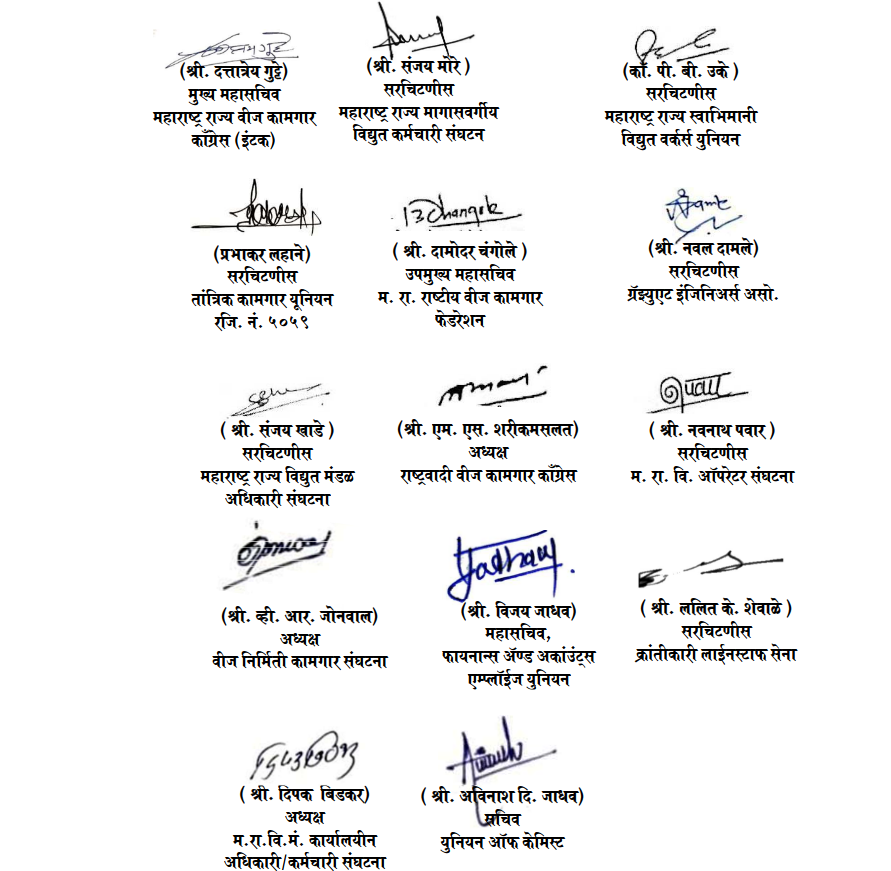 (श्री. दत्तात्रेय गुट्टे)
मुख्य महासचिव
महाराष्ट्र राज्य वीज कामगार
काँग्रेस (इंटक)
(श्री. संजय मोरे )
सरचिटणीस
महाराष्ट्र राज्य मागासवर्गीय
विद्युत कर्मचारी संघटन
(कॉ. पी. बी. उके )
सरचिटणीस
महाराष्ट्र राज्य स्वाभिमानी
विद्युत वर्कर्स युनियन
(प्रभाकर लहाने)
सरचिटणीस
तांत्रिक कामगार यूनियन
रजि. नं. ५०५९
( श्री. दामोदर चंगोले )
उपमुख्य महासचिव
म. रा. राष्टीय वीज कामगार
फेडरेशन
(श्री. नवल दामले)
सरचिटणीस
ग्रॅझ्युएट इंजिनिअर्स असो.
( श्री. संजय खाडे )
सरचिटणीस
महाराष्ट्र राज्य विद्युत मंडळ
अधिकारी संघटना
(श्री. एम. एस. शरीकमसलत)
अध्यक्ष
राष्ट्रवादी वीज कामगार काँग्रेस
( श्री. नवनाथ पवार )
सरचिटणीस
म. रा. वि. ऑपरेटर संघटना
(श्री. व्ही. आर. जोनवाल)
अध्यक्ष
वीज निर्मिती कामगार संघटना
(श्री. विजय जाधव)
महासचिव,
फायनान्स ॲण्ड अकांउंट्स
एम्प्लॉईज युनियन
( श्री. ललित के. शेवाळे )
सरचिटणीस
क्रांतीकारी लाईनस्टाफ सेना
( श्री. दिपक बिडकर)
अध्यक्ष
म.रा.वि.मं. कार्यालयीन
अधिकारी/कर्मचारी संघटना
( श्री. अविनाश दि. जाधव)
सचिव
युनियन ऑफ केमिस्ट